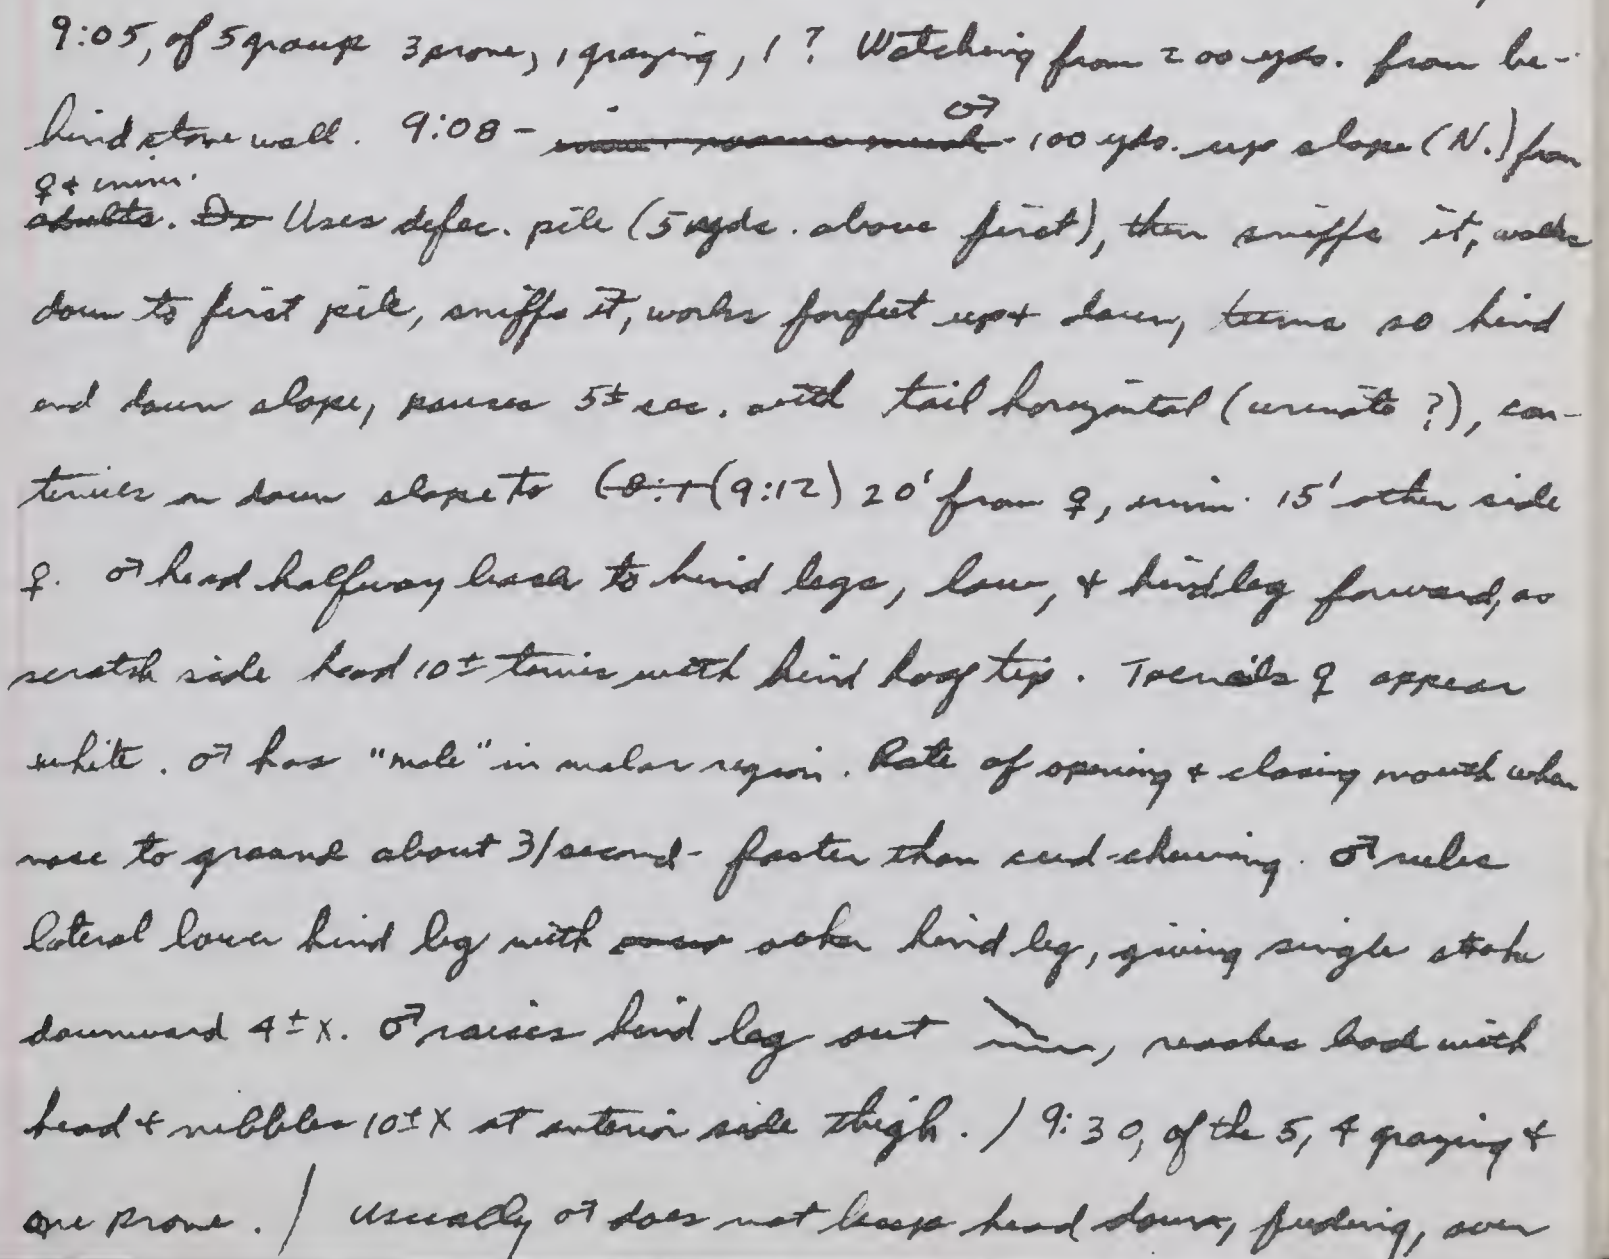 9:05, of 5 group 3 prone, 1 grazing, 1? Watching from 200 yds. from be-
hind stone wall. 9:08 - ♂ 100 yds. up slope (N.) from
♀ + imm.
adults. Uses defec. pile (5 yds. above first), then sniffs it, walks
down to first pile, sniffs it, works forefeet up + down, turns so hind
end down slope, pauses 5± sec. with tail horizontal (urinate ?), con-
tinues on down slope to (9:12) 20' from ♀, imm. 15' other side
♀. ♂ head halfway back to hind legs, low, + hind leg forward, as
scratch side head 10± times with hind hoof tip. Toenails ♀ appear
white. ♂ has "mole" in malar region. Rate of opening + closing mouth when
nose to ground about 3/second - faster than cud-chewing. ♂ rubs
lateral lower hind leg with other hind leg, giving single stroke
downward 4± x. ♂ raises hind leg out , reaches back with
head + nibbles 10± X at anterior side thigh. / 9:30, of the 5, 4 grazing +
one prone. / Usually ♂ does not keep head down, feeding, over